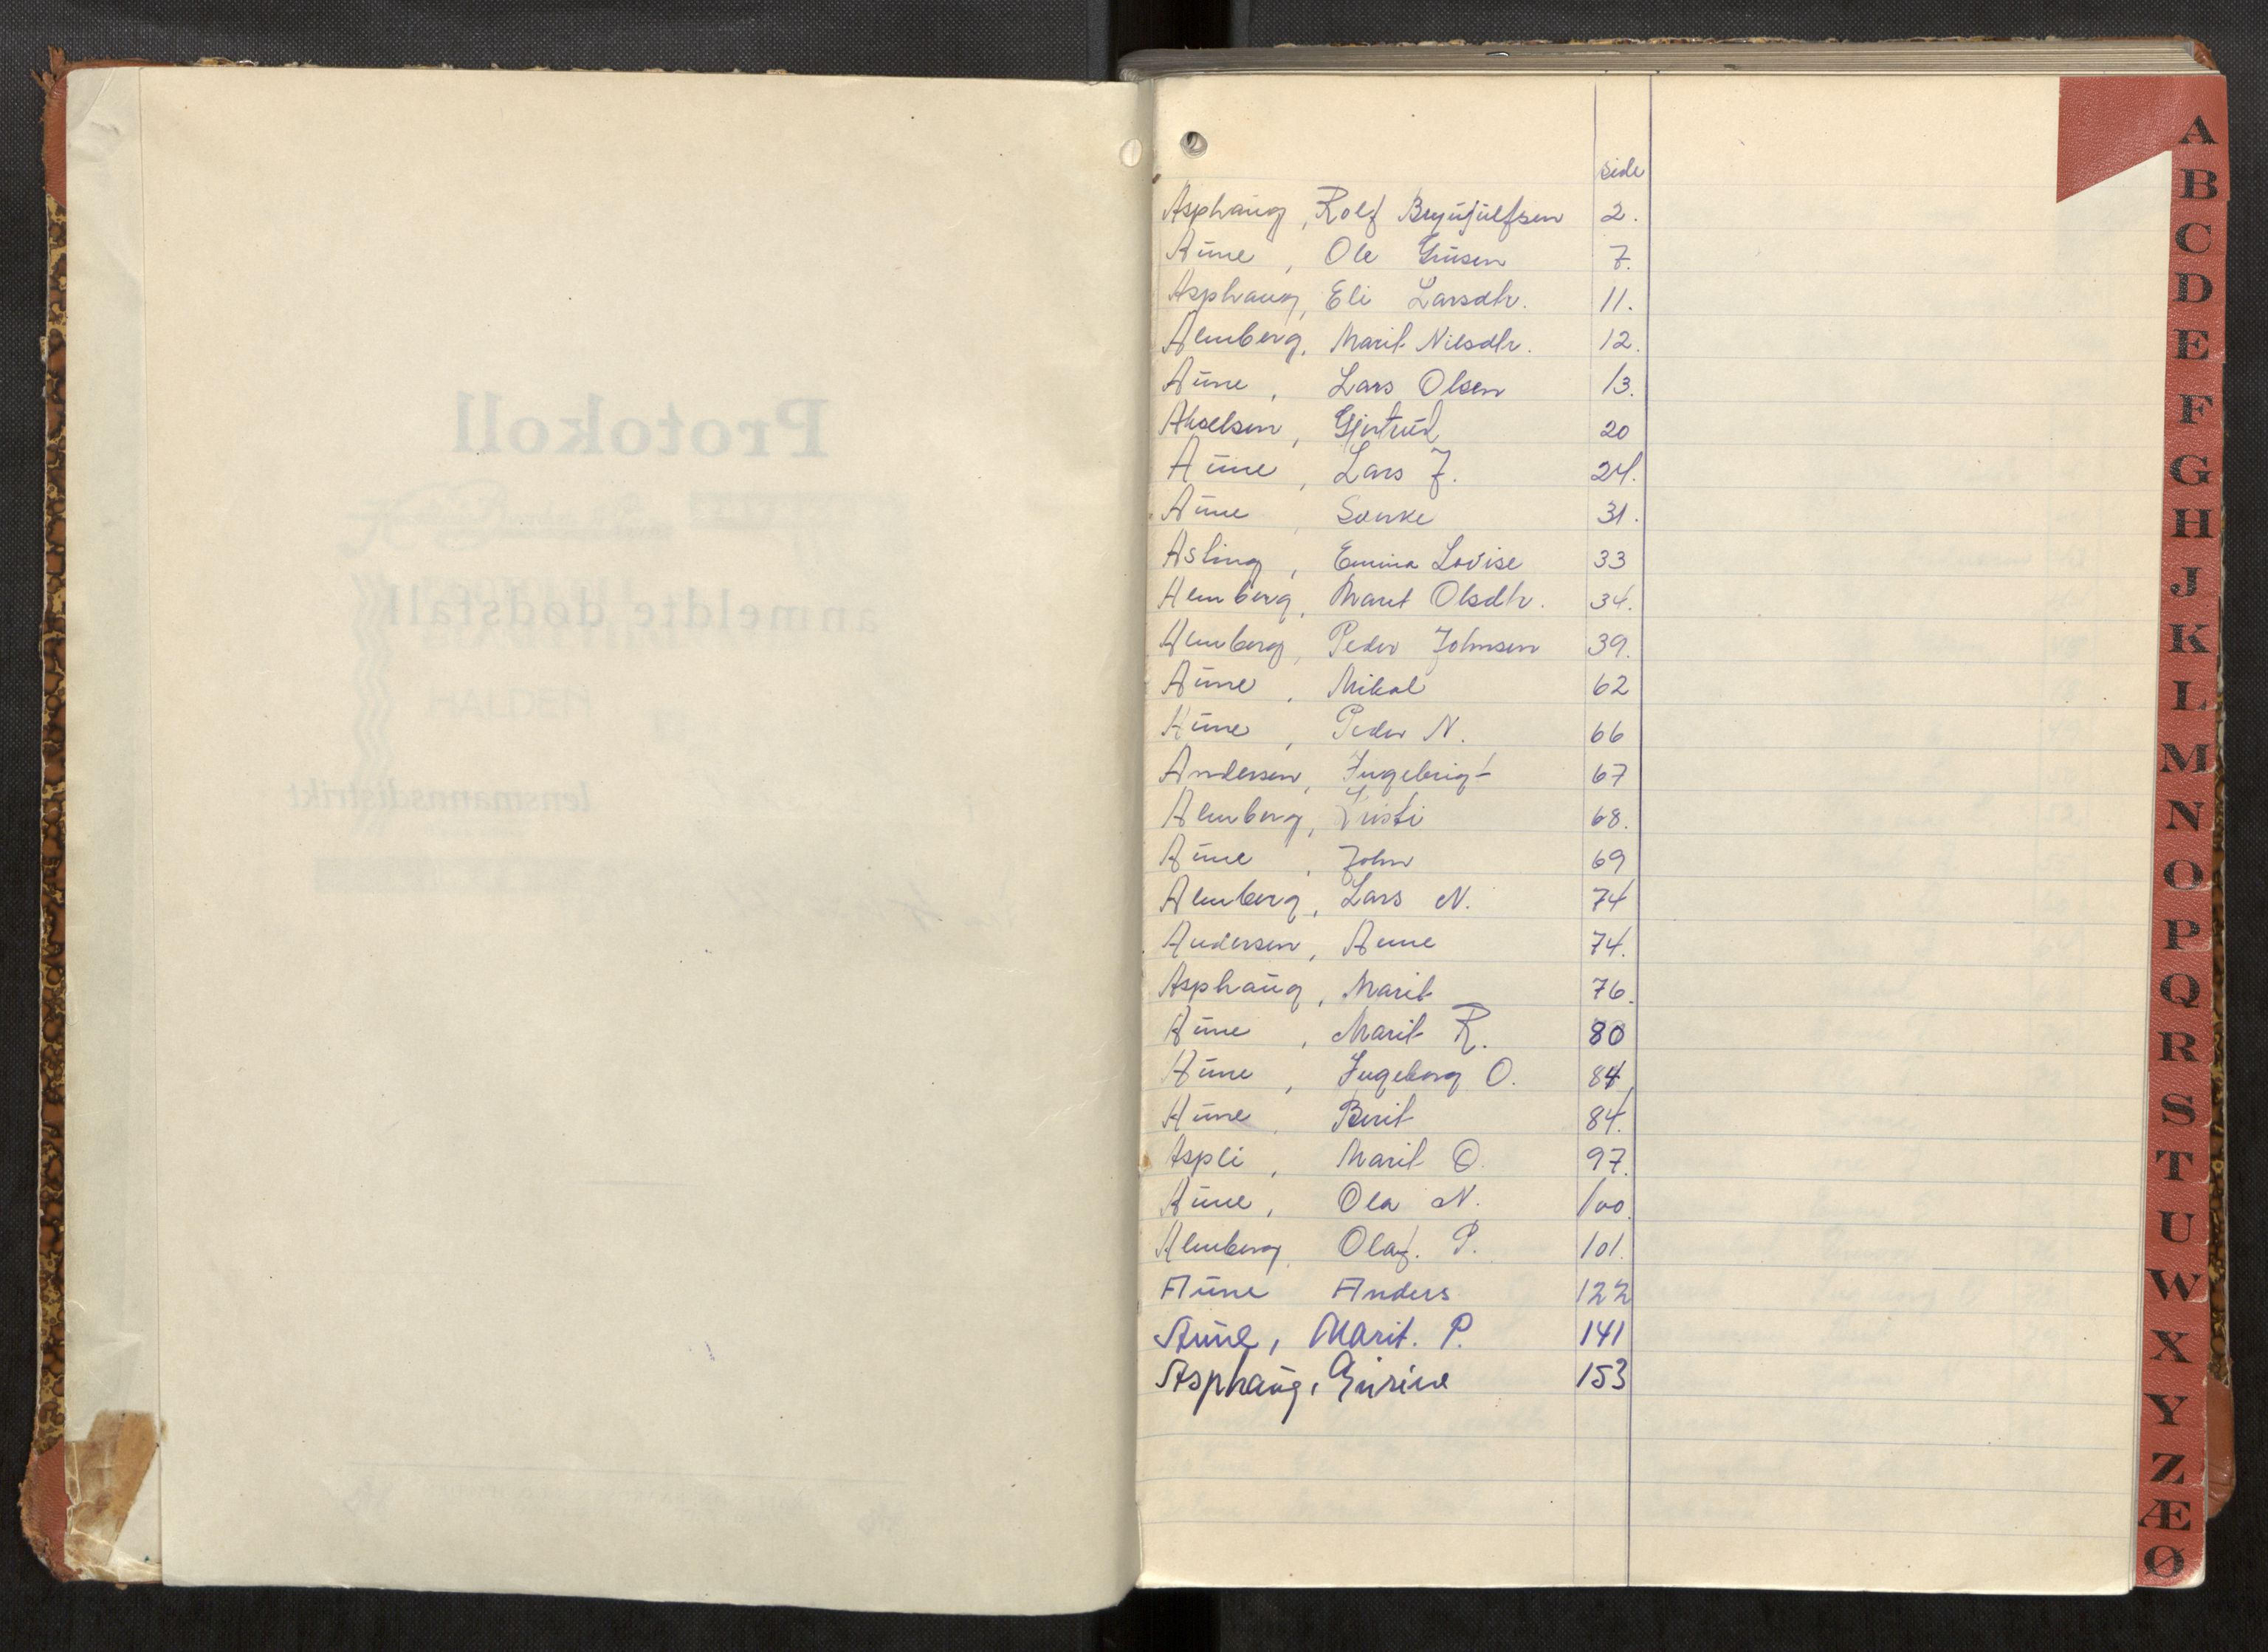 Protokoll
anmeldte dødsfall
i
lensmannsdistrikt
side
Asphaug, Rolf Brynjulfsen 2.
Aune, Ole 7.
Asphaug, Eli Larsdtr. 11.
Almberg, Marit Nilsdtr. 12.
Aune, Lars Olsen 13.
Akselsen, Gjertrud 20
Aune, Lars J. 24.
Aune 31.
Asling, Emma Lovise 33
Almberg, Marit Olsdtr. 34.
Almberg, Peder Johnsen 39.
Aune, Mikal 62
Aune, Peder N. 66
Andersen, Ingebrigt 67
Almberg, Kristi 68.
Aune, John 69
Almberg, Lars N. 74
Andersen, Anne 74.
Asphaug, Marit 76.
Aune, Marit R. 80
Aune, Ingeborg O. 84
Aune, Berit 84.
Aspli, Marit O. 97.
Aune, Ola N. 100.
Almberg, Olaf. P. 101.
Aune Anders 122
Aune, Marit. P. 141
Asphaug, Gurine 153
A
B
C
D
E
F
G
H
J
K
L
M
N
O
P
Q
R
S
T
U
W
X
Y
Z
Æ
Ø